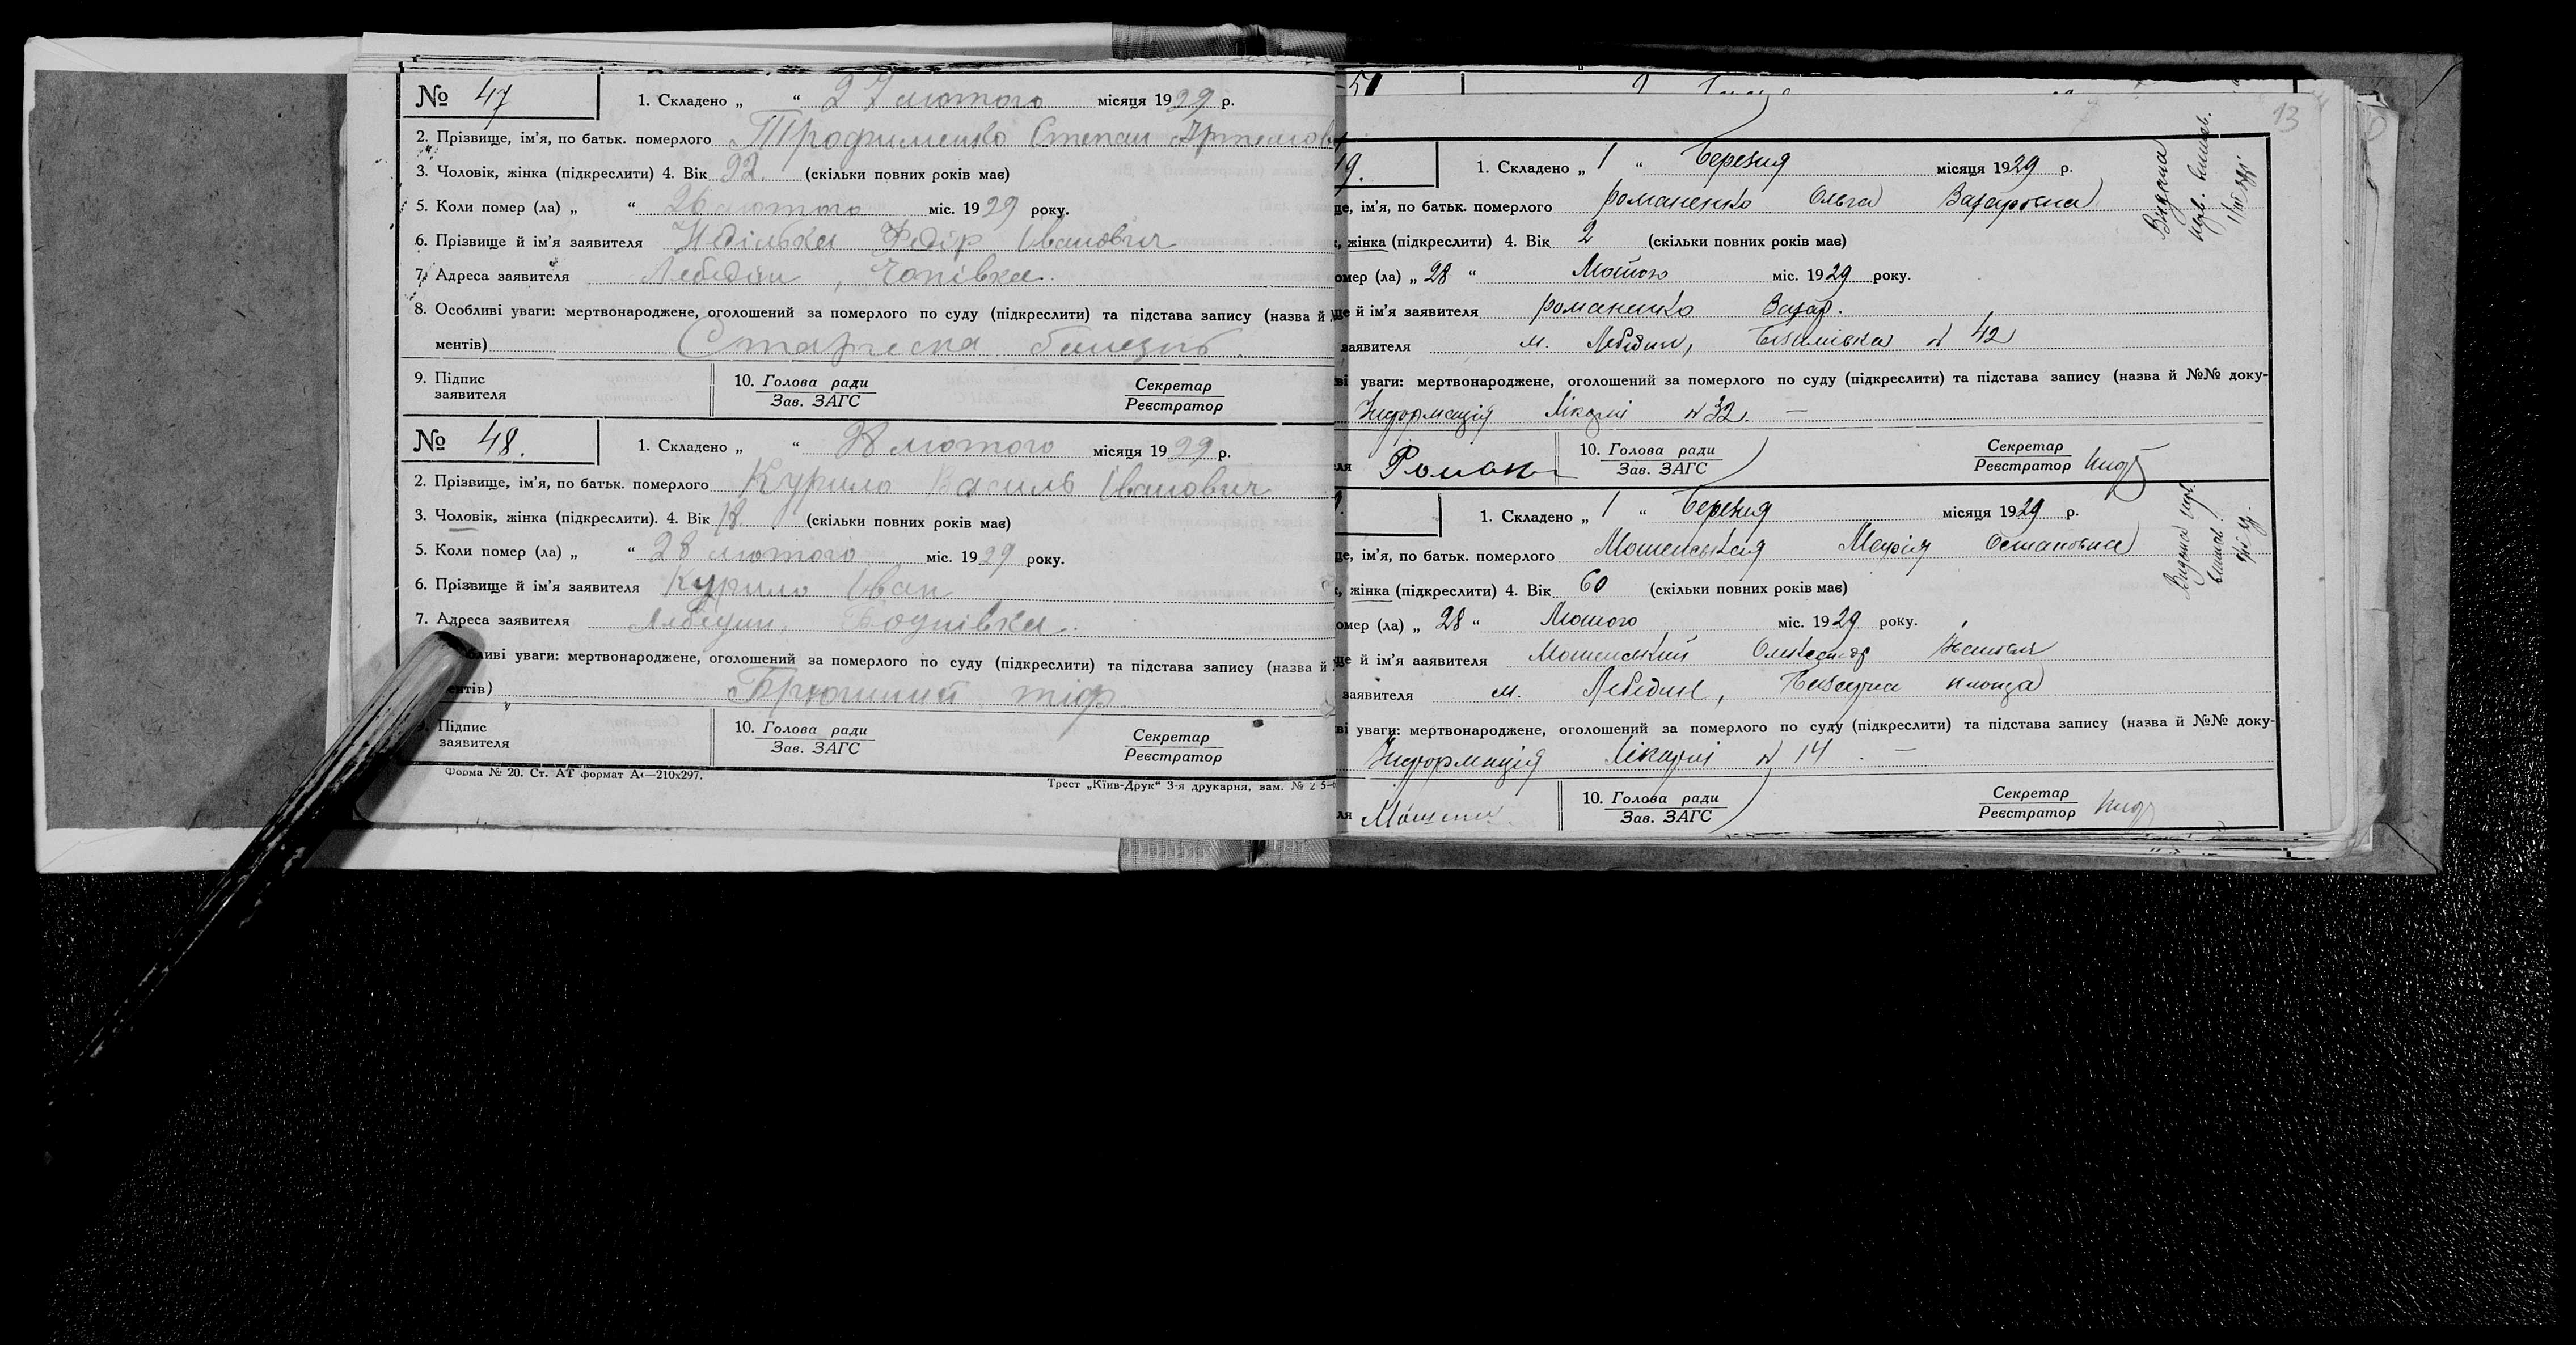 № 47
1. Складено „ “ 27 лютого місяця 1929 р.
2. Прізвище, ім'я, по батьк. померлого Трофименко Степан Артемов
3. Чоловік, жінка (підкреслити) 4. Вік 92. (скільки повних років має)
5. Коли помер (ла) „ “ 26 лютого міс. 1929 року.
6. Прізвище й ім'я заявителя Федір Іванович
7. Адреса заявителя Лебедин, Чопівка.
8. Особливі уваги: мертвонароджене, оголошений за померлого по суду (підкреслити) та підстава запису (назва й
ментів) Старческа болезнь.
9. Підпис заявителя
10. Голова ради
Зав. ЗАГС
Секретар
Реєстратор
№ 48.
1. Складено „ “ 28 лютого місяця 1929 р.
2. Прізвище, ім'я, по батьк. померлого Курило Василь Іванович
3. Чоловік, жінка (підкреслити). 4. Вік 18 (скільки повних років має)
5. Коли помер (ла) „ “ 28 лютого міс. 1929 року.
6. Прізвище й ім'я заявителя Курило Іван
7. Адреса заявителя Лебедин.
бливі уваги: мертвонароджене, оголошений за померлого по суду (підкреслити) та підстава запису (назва й
ентів) Брюшний тіф.
Підпис заявителя
10. Голова ради
Зав. ЗАГС
Секретар
Реєстратор
Форма № 20. Ст. АТ формат А4—210х297.
Трест „Київ-Друк“ 3-я друкарня, зам. №
51
13
9.
1. Складено „ 1 “ Березня місяця 1929 р.
це, ім'я, по батьк. померлого Романенко Ольга Захаровна
, жінка (підкреслити) 4. Вік 2 (скільки повних років має)
омер (ла) „ 28 “ Лютого міс. 1929 року.
ще й ім'я заявителя Романенко Захар.
заявителя м. Лебедин, № 42
ві уваги: мертвонароджене, оголошений за померлого по суду (підкреслити) та підстава запису (назва й №№ доку-
Інформація лікарні № 32. —
ля Роман
10. Голова ради
Зав. ЗАГС
Секретар
Реєстратор
Видана
1. Складено „ 1 “ Березня місяця 1929 р.
це, ім'я, по батьк. померлого Мошенська Марія Остаповна
, жінка (підкреслити) 4. Вік 60 (скільки повних років має)
омер (ла) „ 28 “ Лютого міс. 1929 року.
ще й ім'я заявителя Мошенський Олександр
заявителя м. Лебедин, Базарна площа
ві уваги: мертвонароджене, оголошений за померлого по суду (підкреслити) та підстава запису (назва й №№ доку-
Інформація лікарні № 14 —
ля
10. Голова ради
Зав. ЗАГС
Секретар
Реєстратор
Видана